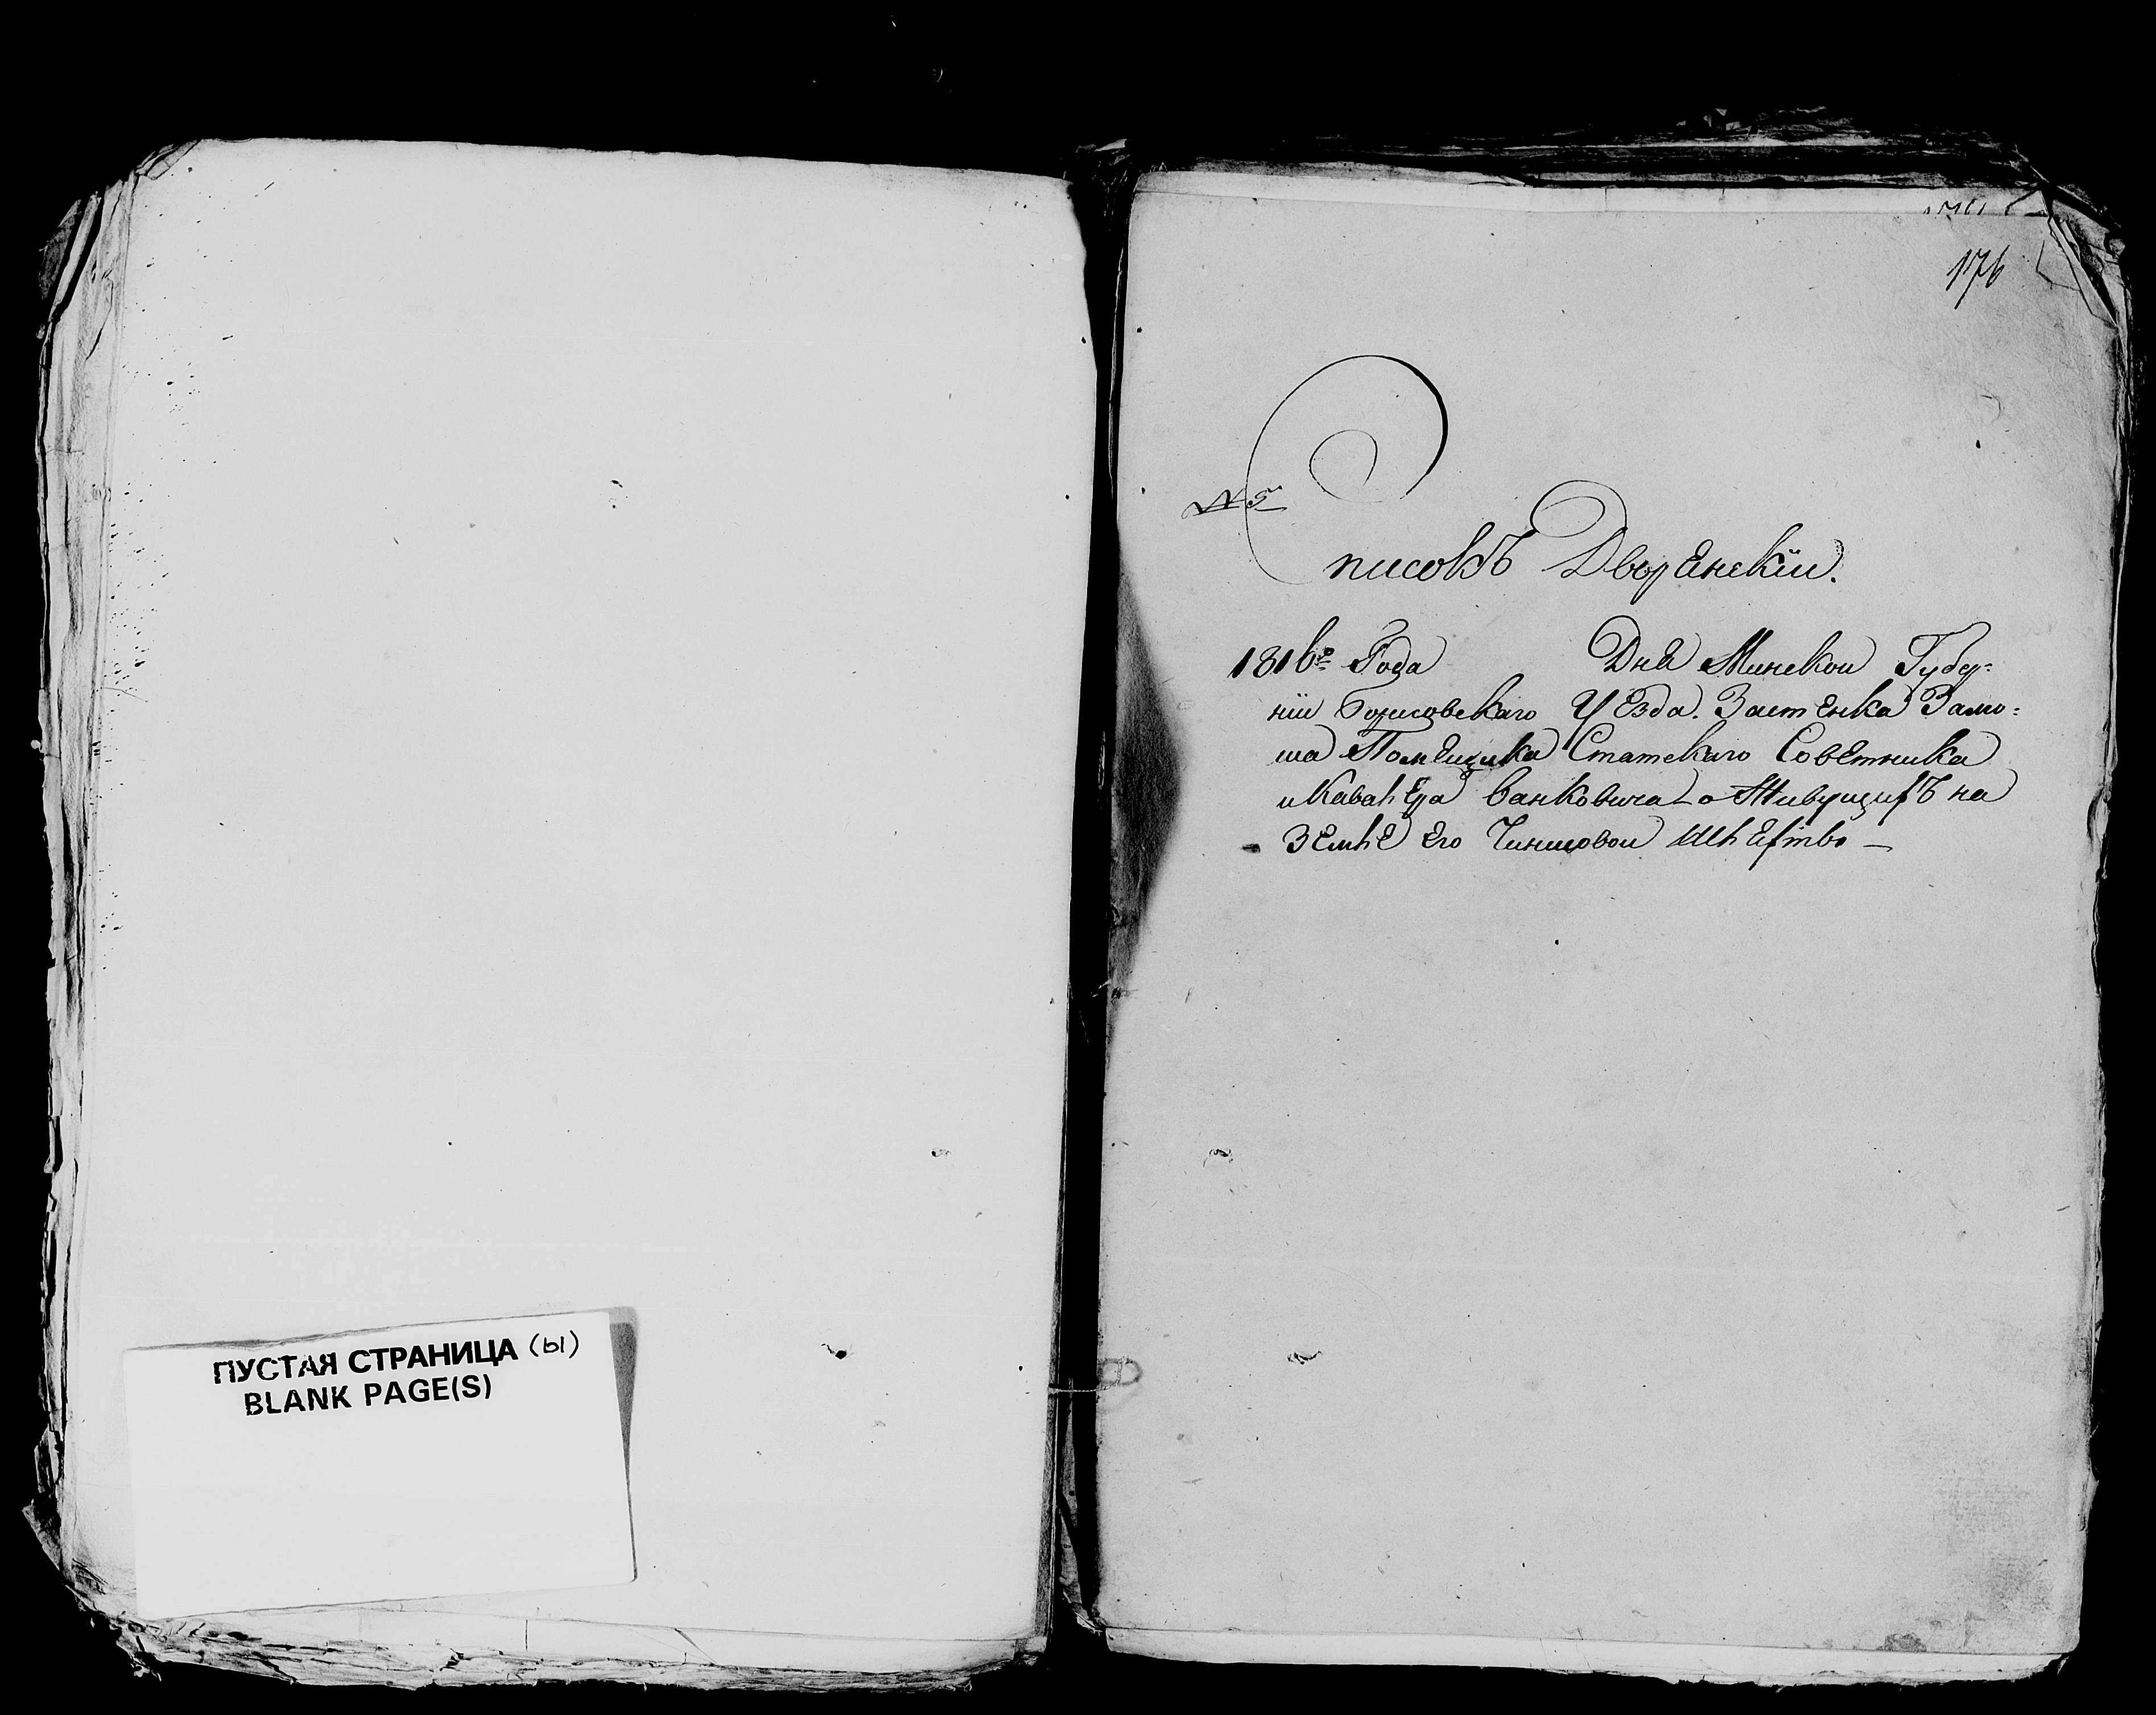 ПУСТАЯ СТРАНИЦА (Ы)
BLANK PAGE(S)
176
№ 5
Списокъ Дворенскiи.
1816го Года Дня Минскои Губер=
нiи Борисовскаго Уезда. Застенка Замо=
ша Помещика Статскаго Советника
и Кавалера Ваньковича о Живущихъ на
Земле Его Чиншовои Шлехтво —